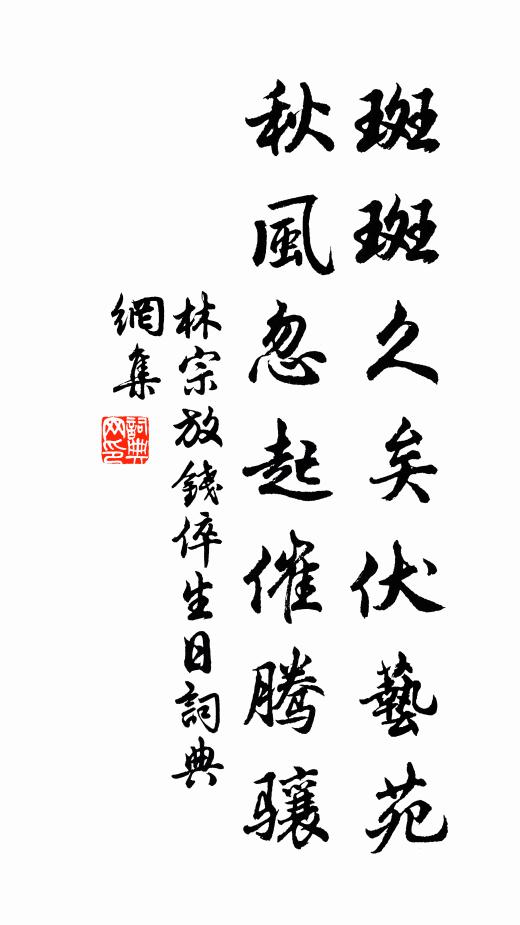 斑斑久矣伏藝苑
秋風忽起催騰骧
林宗放錢倅生日詞典
網集
詞典
网印